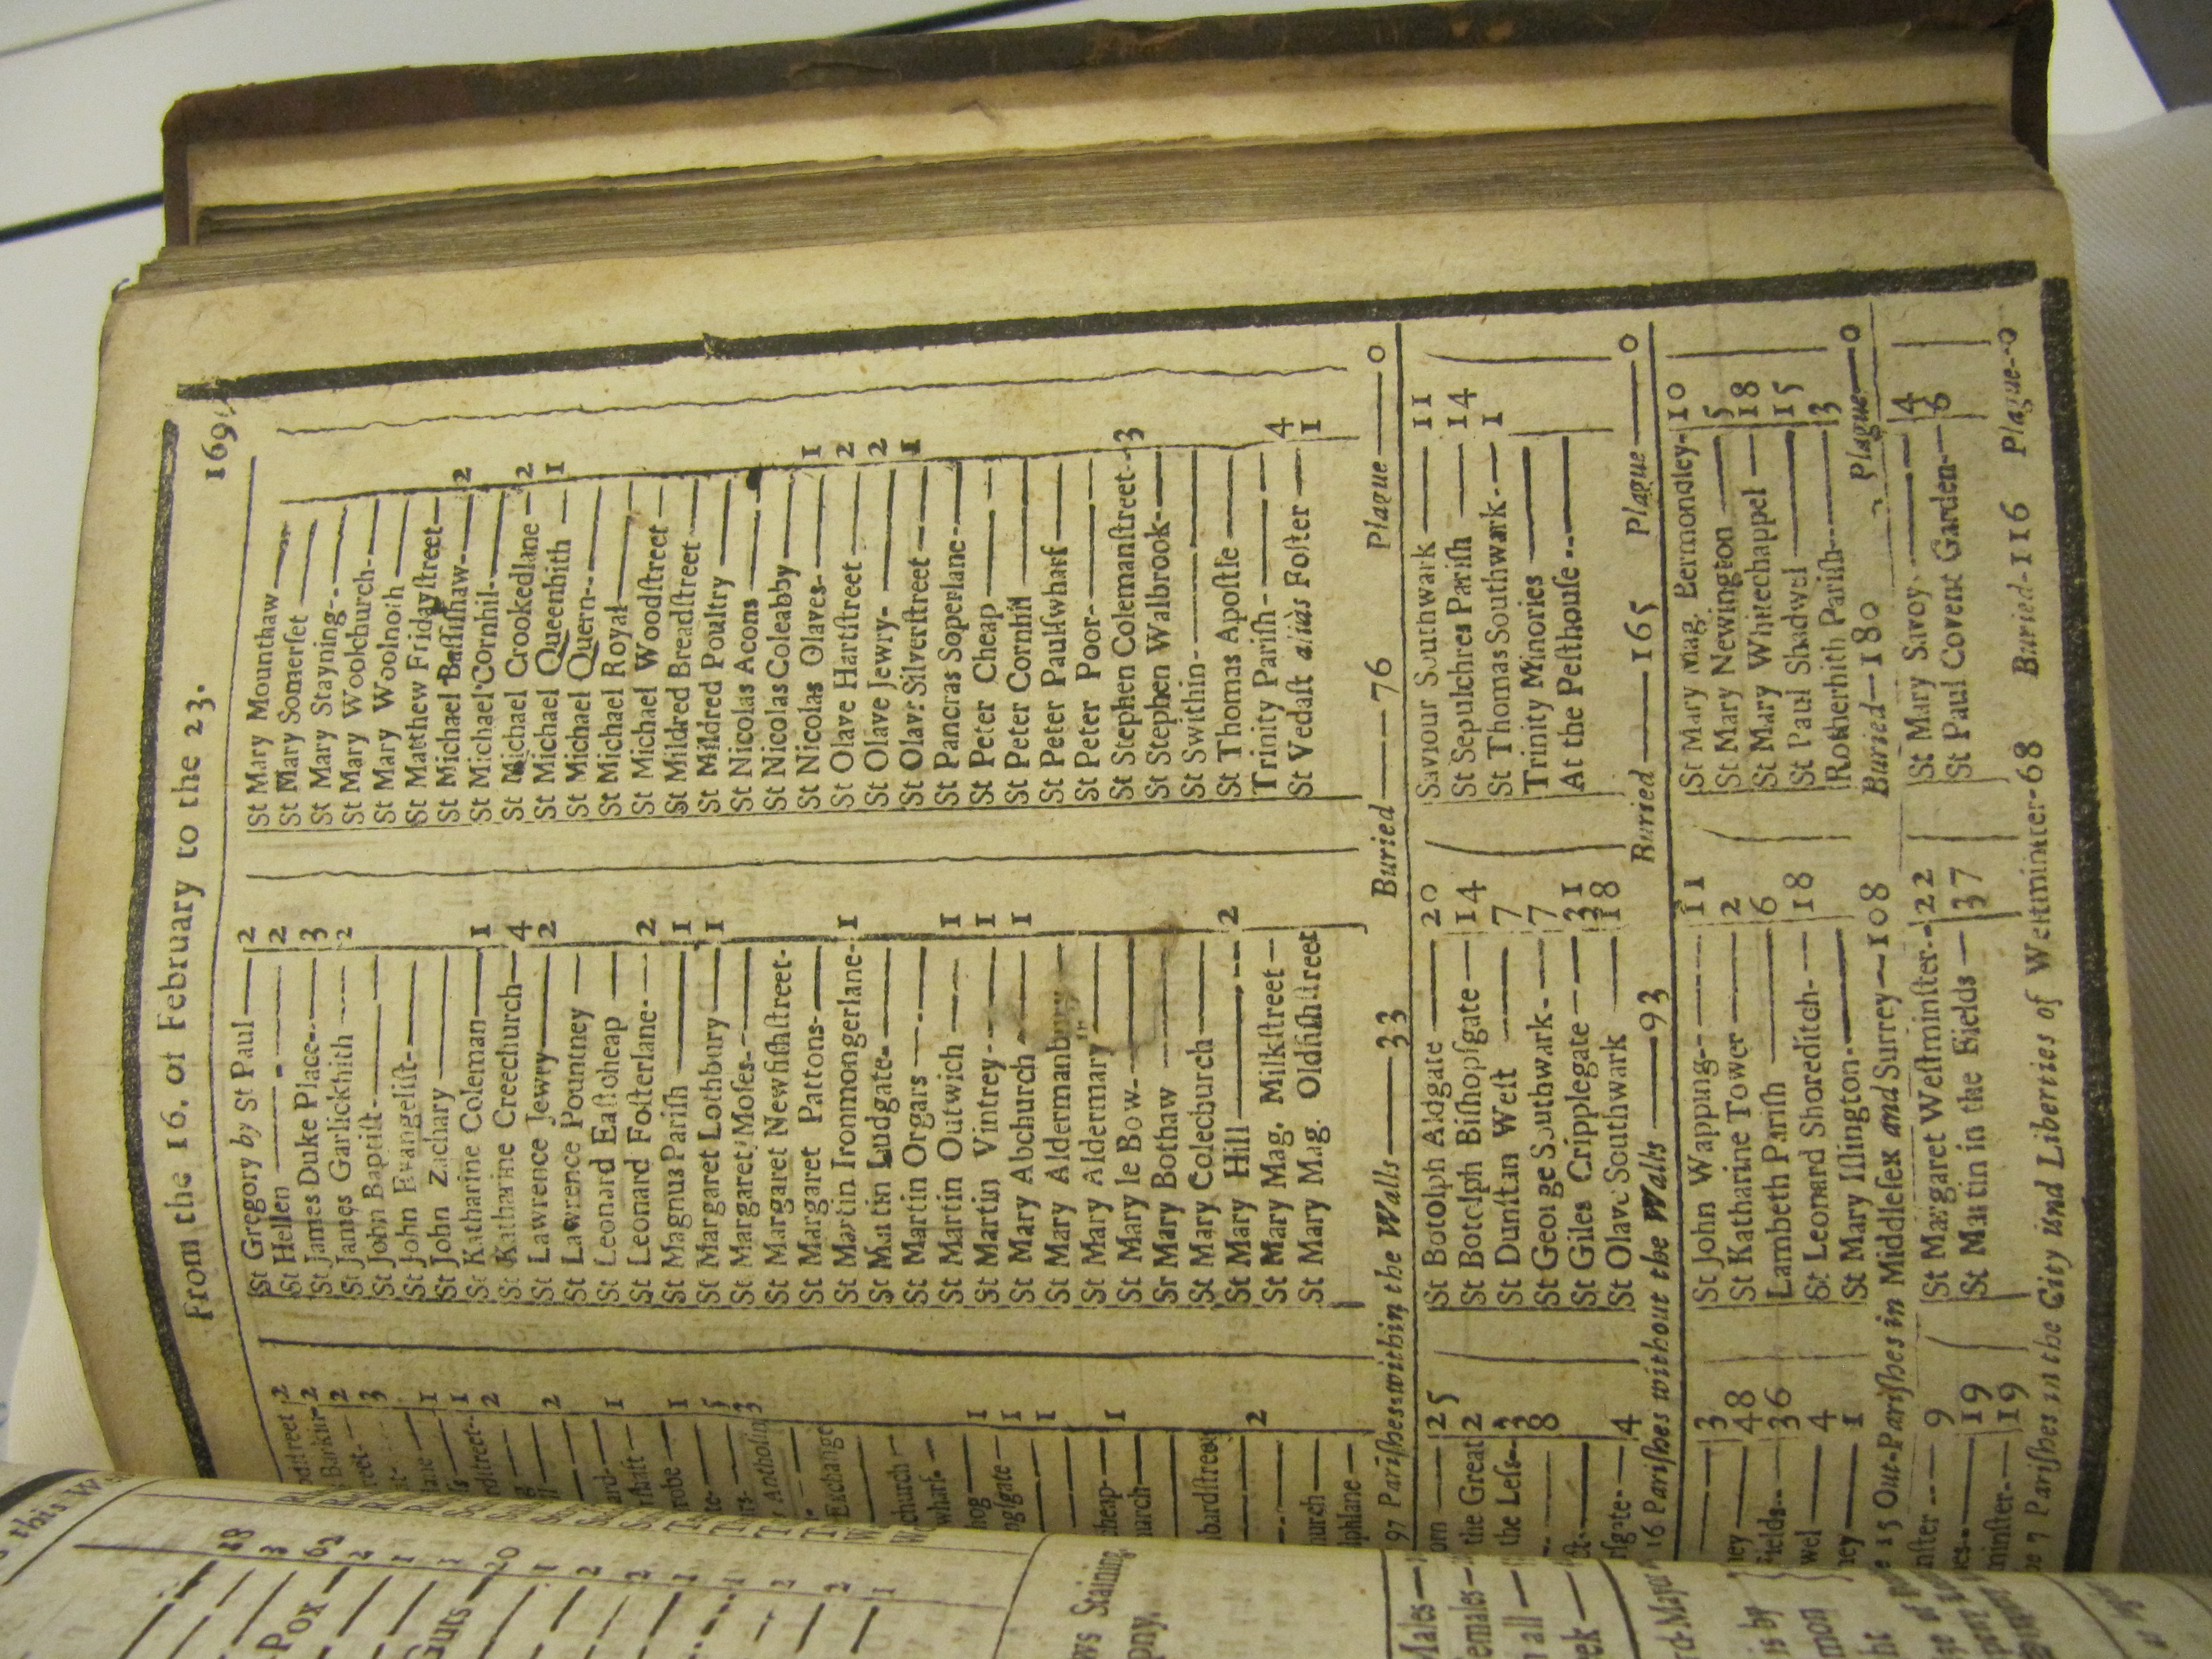 From the 16. of February to the 23. 169
ndstreet 2
Barkin- 2
reet- 2
3
lane 1
1
rdstreet- 2
2
ard- 1
shaft
trobe 1
5
Antholin 3
Exchange
church
wharf-
hog 1
ngsgate 1
1
cheap- 1
hurch
bardstreet
2
hurch
phlane
St Gregory by St Paul 2
St Hellen 2
St James Duke Place 3
St James Garlickhith 2
St John Baptist
St John Evangelist
St John Zachary
St Katharine Coleman 1
St Katharine Creechurch 4
St Lawrence Jewry 2
St Lawrence Pountney
St Leonard Eastcheap
St Leonard Fosterlane- 2
St Magnus Parish 1
St Margaret Lothbury 1
St Margaret Moses-
St Margaret Newfishstreet-
St Margaret Pattons-
St Martin Ironmongerlane- 1
St Martin Ludgate-
St Martin Orgars
St Martin Outwich 1
St Martin Vintrey 1
St Mary Abchurch 1
St Mary Aldermanbury
St Mary Aldermary
St Mary le Bow-
St Mary Bothaw
St Mary Colechurch
St Mary Hill 2
St Mary Mag. Milkstreet
St Mary Mag. Oldfishstreet
St Mary Mounthaw
St Mary Somerset
St Mary Stayning-
St Mary Woolchurch-
St Mary Woolnoth
St Matthew Fridaystreet
St Michael Bassishaw- 2
St Michael Cornhil-
St Michael Crookedlane 2
St Michael Queenhith 1
St Michael Quern-
St Michael Royal
St Michael Woodstreet
St Mildred Breadstreet
St Mildred Poultry
St Nicolas Acons
St Nicolas Coleabby
St Nicolas Olaves- 1
St Olave Hartstreet 2
St Olave Jewry- 2
St Olave Silverstreet 1
St Pancras Soperlane-
St Peter Cheap
St Peter Cornhil
St Peter Paulswharf
St Peter Poor-
St Stephen Colemanstreet- 3
St Stephen Walbrook-
St Swithin
St Thomas Apostle
Trinity Parish 4
St Vedast aliàs Foster 1
97 Parishes within the Walls 33 Buried 76 Plague 0
orn 25
the Great 2
the Less- 3
8
rsgate 4
St Botolph Aldgate 20
St Botolph Bishopsgate 14
St Dunstan West 7
St George Southwark- 7
St Giles Cripplegate 31
St Olave Southwark 18
Saviour Southwark 11
St Sepulchres Parish 14
St Thomas Southwark- 1
Trinity Minories
At the Pesthouse
16 Parishes without the Walls 93 Buried 165 Plague 0
3
ney 48
Fields 36
wel 4
ney 1
St John Wapping- 11
St Katharine Tower 2
Lambeth Parish 6
St Leonard Shoreditch- 18
St Mary Islington-
St Mary Mag. Bermondsey- 10
St Mary Newington 5
St Mary Whitechappel 18
St Paul Shadwel 15
Rotherhith Parish 3
15 Out-Parishes in Middlesex and Surrey 108 Buried 180 Plague 0
nster 9
19
minster 19
St Margaret Westminster- 22
St Martin in the Fields 37
St Mary Savoy 4
St Paul Covent Garden- 6
7 Parishes in the City and Liberties of Westminster- 68 Buried- 116 Plague- 0
this W
28
3
Pox 62
2
1
1
Guts 20
1
2
2
1
1
2
2
1
ws Staining
pony.
Males
Females
all
eek
is by